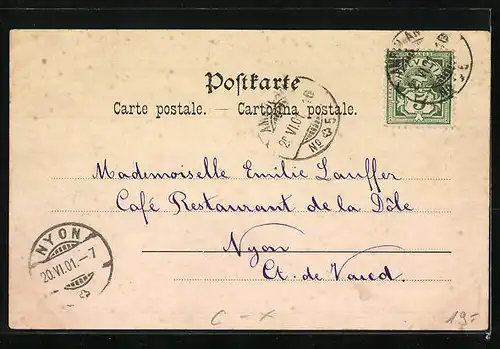 Postkarte
Carte postale. — Cartolina postale.
HELVETIA
5
20 VI.01
No 5
Mademoiselle Emilie Lauffer
Café Restaurant de la Dôle
Nyon
Ct. de Vaud.
NYON
20.VI.01.-7
C - X
19=